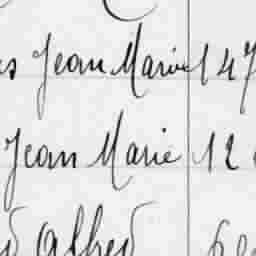 Jean Marie 147
Jean Marie 12
Alfred